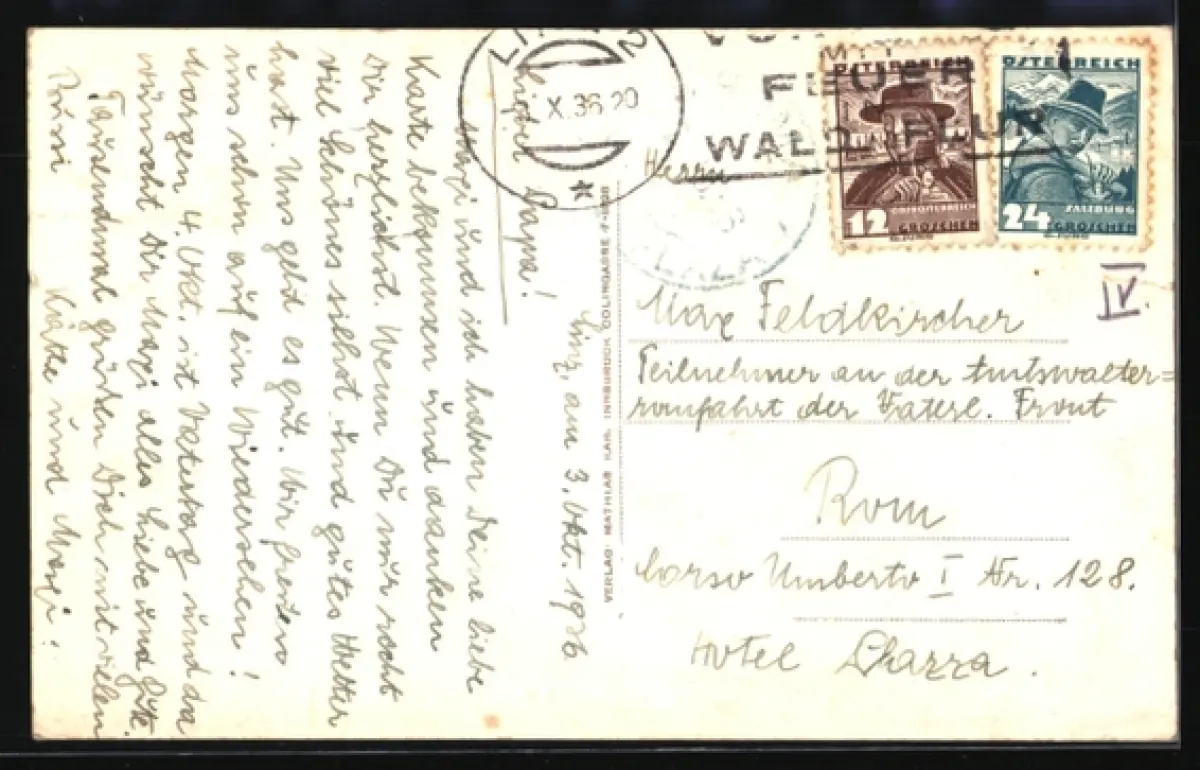 Linz, am 3. Okt. 1936
Lieber Papa!
Margi und ich haben Deine liebe
Karte bekommen und danken
Dir herzlichst. Wenn Du nur recht
viel Schönes siehst und gutes Wetter
hast. Uns geht es gut. Wir freuen
uns schon auf ein Wiedersehen!
Morgen 4. Okt. ist Vatertag und da
wünscht Dir Margi alles Liebe und Gute.
Tausendmal grüßen Dich mit vielen
Bussi
Käthe und Margi.
VERLAG: MATHIAS KAR, INNSBRUCK COLINGASSE
LINZ 2
X. 36 20
MIT
FEUER
WALD
ÖSTERREICH
12
OBERÖSTERREICH
GROSCHEN
ÖSTERREICH
24
SALZBURG
GROSCHEN
IV.
Herrn
Max Feldkircher
Teilnehmer an der Amtswalter=
romfahrt der Vaterl. Front
Rom
Corso Umberto I Nr. 128.
Hotel